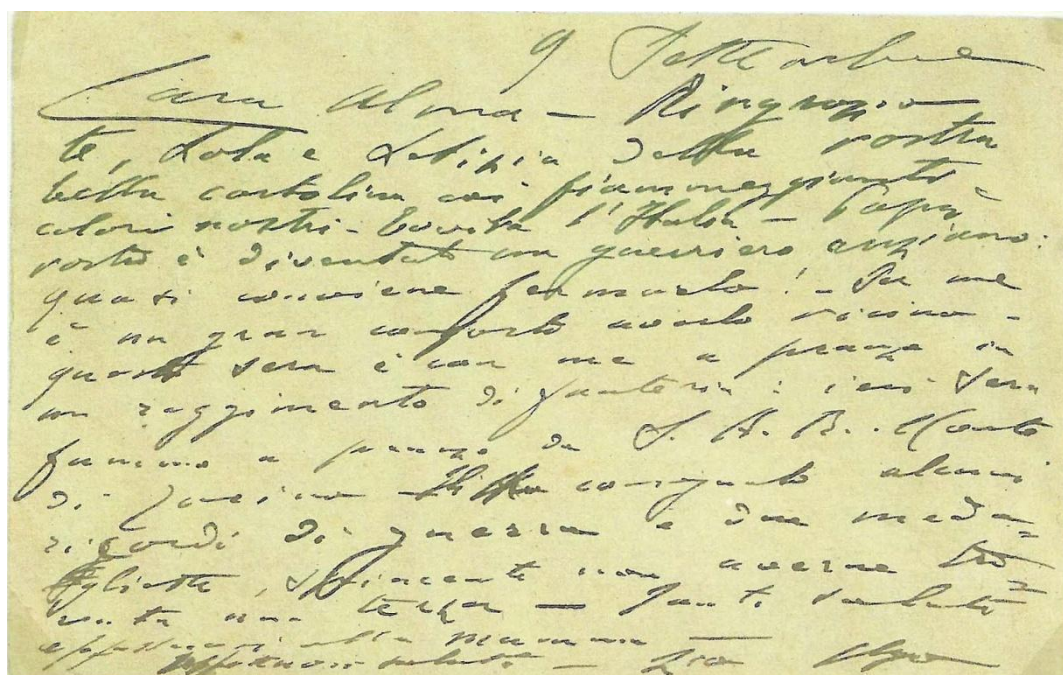 9 Settembre
Cara Alma – Ringrazio
te, Lola e Letizia della vostra
bella cartolina coi fiammeggianti
colori nostri. Evviva l'Italia – Papà
vostro è diventato un guerriero anziano:
quasi conviene fermarlo! – Per me
è un gran conforto averlo vicino –
questa sera è con me a pranzo in
un reggimento di fanteria: ieri sera
fummo a pranzo da S. A. R. Conte
di Torino – Gli ho consegnato alcuni
ricordi di guerra e due meda=
gliette, spiacente non averne tro=
vata una terza – Tanti saluti
affettuosi alla mamma –
affettuosi saluti – Zio